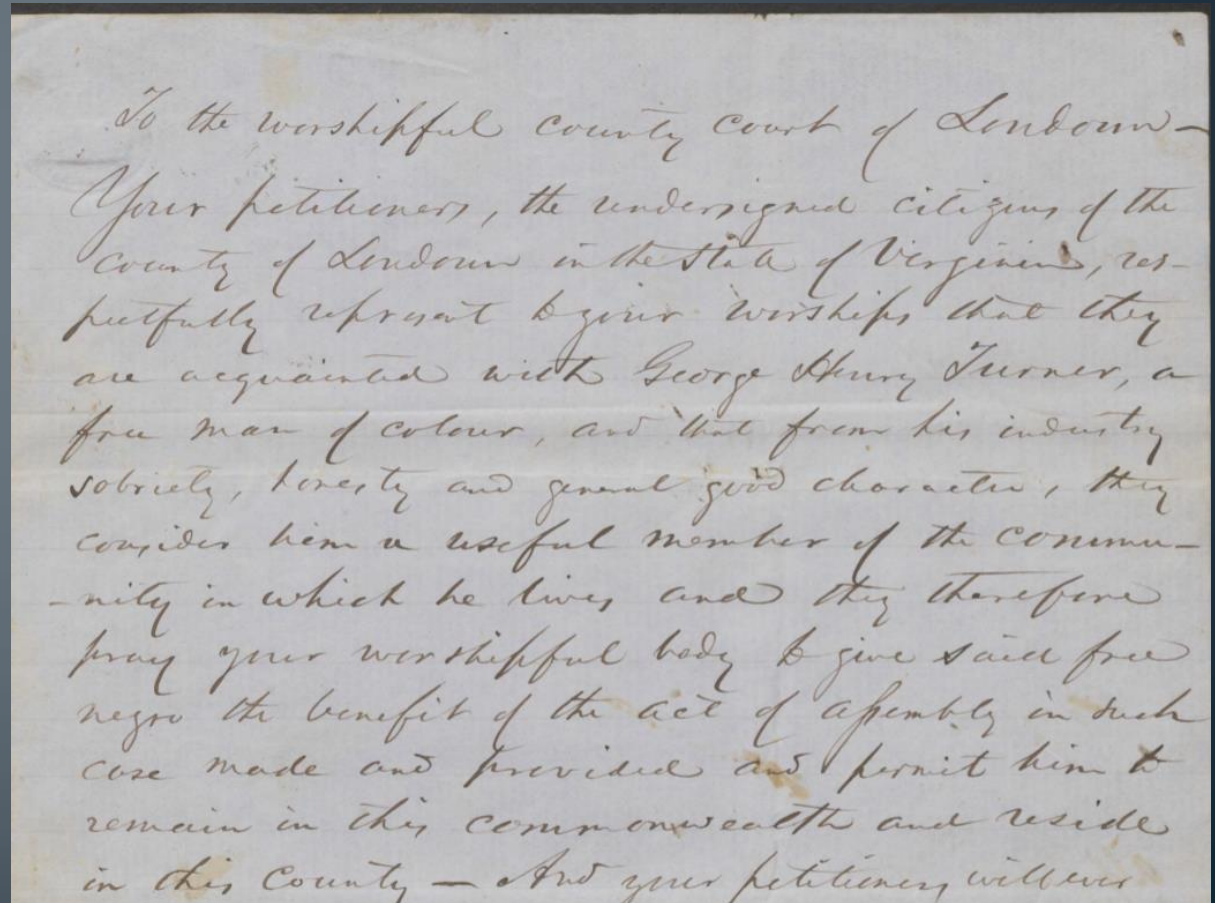 To the worshipful county court of Loudoun—
Your petitioners, the undersigned citizens of the
county of Loudoun in the State of Virginia, res-
pectfully represent to your worships that they
are acquainted with George Henry Turner, a
free man of colour, and that from his industry
sobriety, honesty and general good character, they
consider him a useful member of the commu-
-nity in which he lives and they therefore
pray your worshipful body to give said free
negro the benefit of the act of assembly in such
case made and provided and permit him to
remain in this commonwealth and reside
in this County — And your petitioners will ever